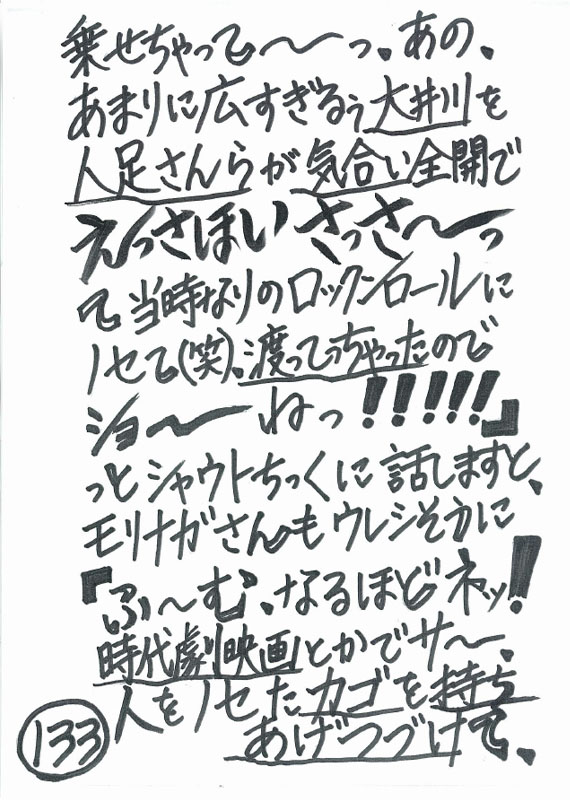 乗せちゃって〜〜っ。あの、
あまりに広すぎるぅ大井川を
人足さんらが気合い全開で
えっさほいさっさ〜〜っ
て当時なりのロックンロールに
ノセて(笑)、渡ってっちゃったので
ショ〜〜ねっ!!!!!』
っとシャウトちっくに話しますと、
モリナガさんもウレシそうに
『ふ〜む、なるほどネッ!
時代劇映画とかでサ〜、
人をノセたカゴを持ち
あげつづけて、
133